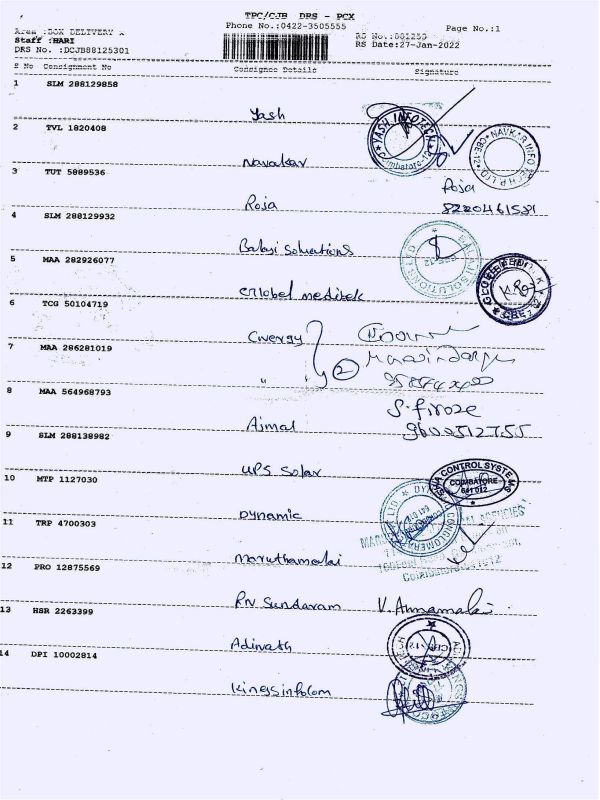 TPC/CJB DRS - PCX
Phone No.:0422-3505555
Page No.:1
Area :BOX DELIVERY A
Staff :HARI
DRS No. :DCJB88125301
RS No.:
RS Date:27-Jan-2022
S No Consignment No Consignee Details Signature
1 SLM 288129858 Yash
YASH INFOTECH
Coimbatore-12
2 TVL 1820408 Navakar
NAVKAR INFOTECH P LTD
CBE-12
3 TUT 5889536 Roja Roja
8220461531
4 SLM 288129932 Balaji Solutions
BALAJI SOLUTIONS
5 MAA 282926077 Global meditek
CBE
6 TCG 50104719 Civergy
7 MAA 286281019 " " 2
8 MAA 564968793 Ajmal S. firoze
9600512755
9 SLM 288138982 UPS Solar
CONTROL SYSTEMS
COIMBATORE
641 012
10 MTP 1127030 Dynamic
CONGLOMERATE
11 TRP 4700303 Maruthamalai
12 PRO 12875569 RN Sundaram V. Annamalai
13 HSR 2263399 Adinath
14 DPI 10002814 Kingsinfocom